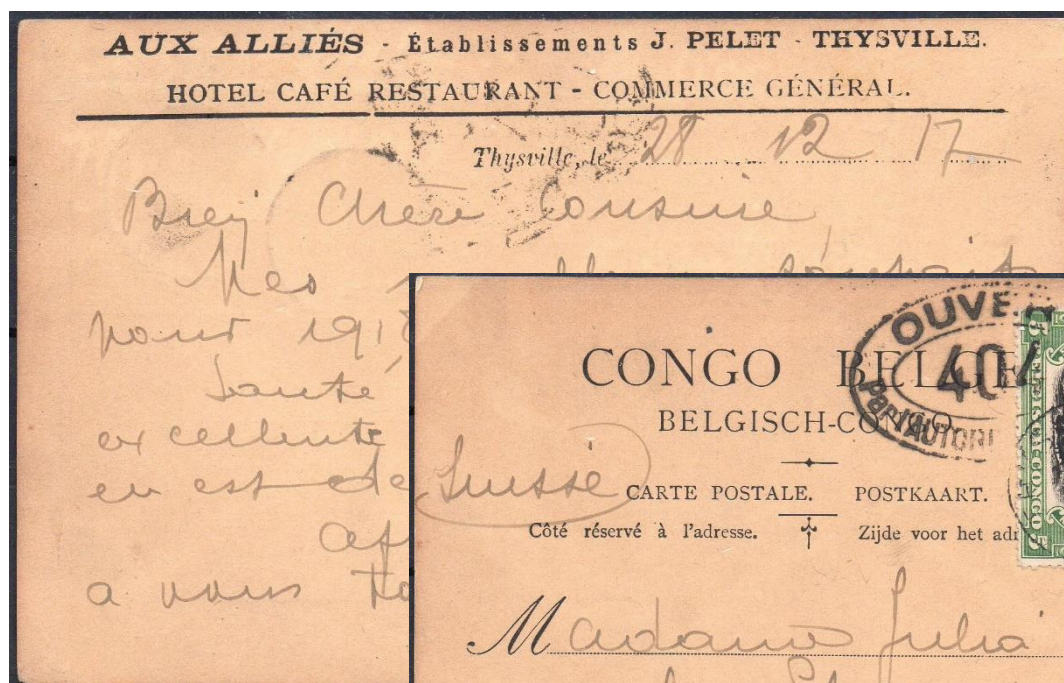 AUX ALLIÉS - Établissements J. PELET - THYSVILLE.
HOTEL CAFÉ RESTAURANT - COMMERCE GÉNÉRAL.
Thysville, le 28 12 17
Bien Chère Cousine
Mes
pour 191
Santé
excellente
en est de
a vous
OUVE
404
Par l'AUTORI
CONGO BELGE
BELGISCH-CONGO.
Suisse
CARTE POSTALE. POSTKAART.
Côté réservé à l'adresse. Zijde voor het adr
Madame Julia